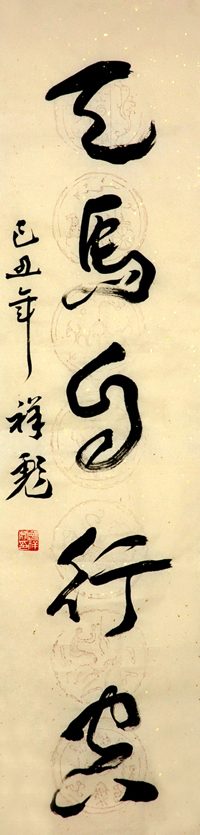 天馬自行空
己丑年 祥彪